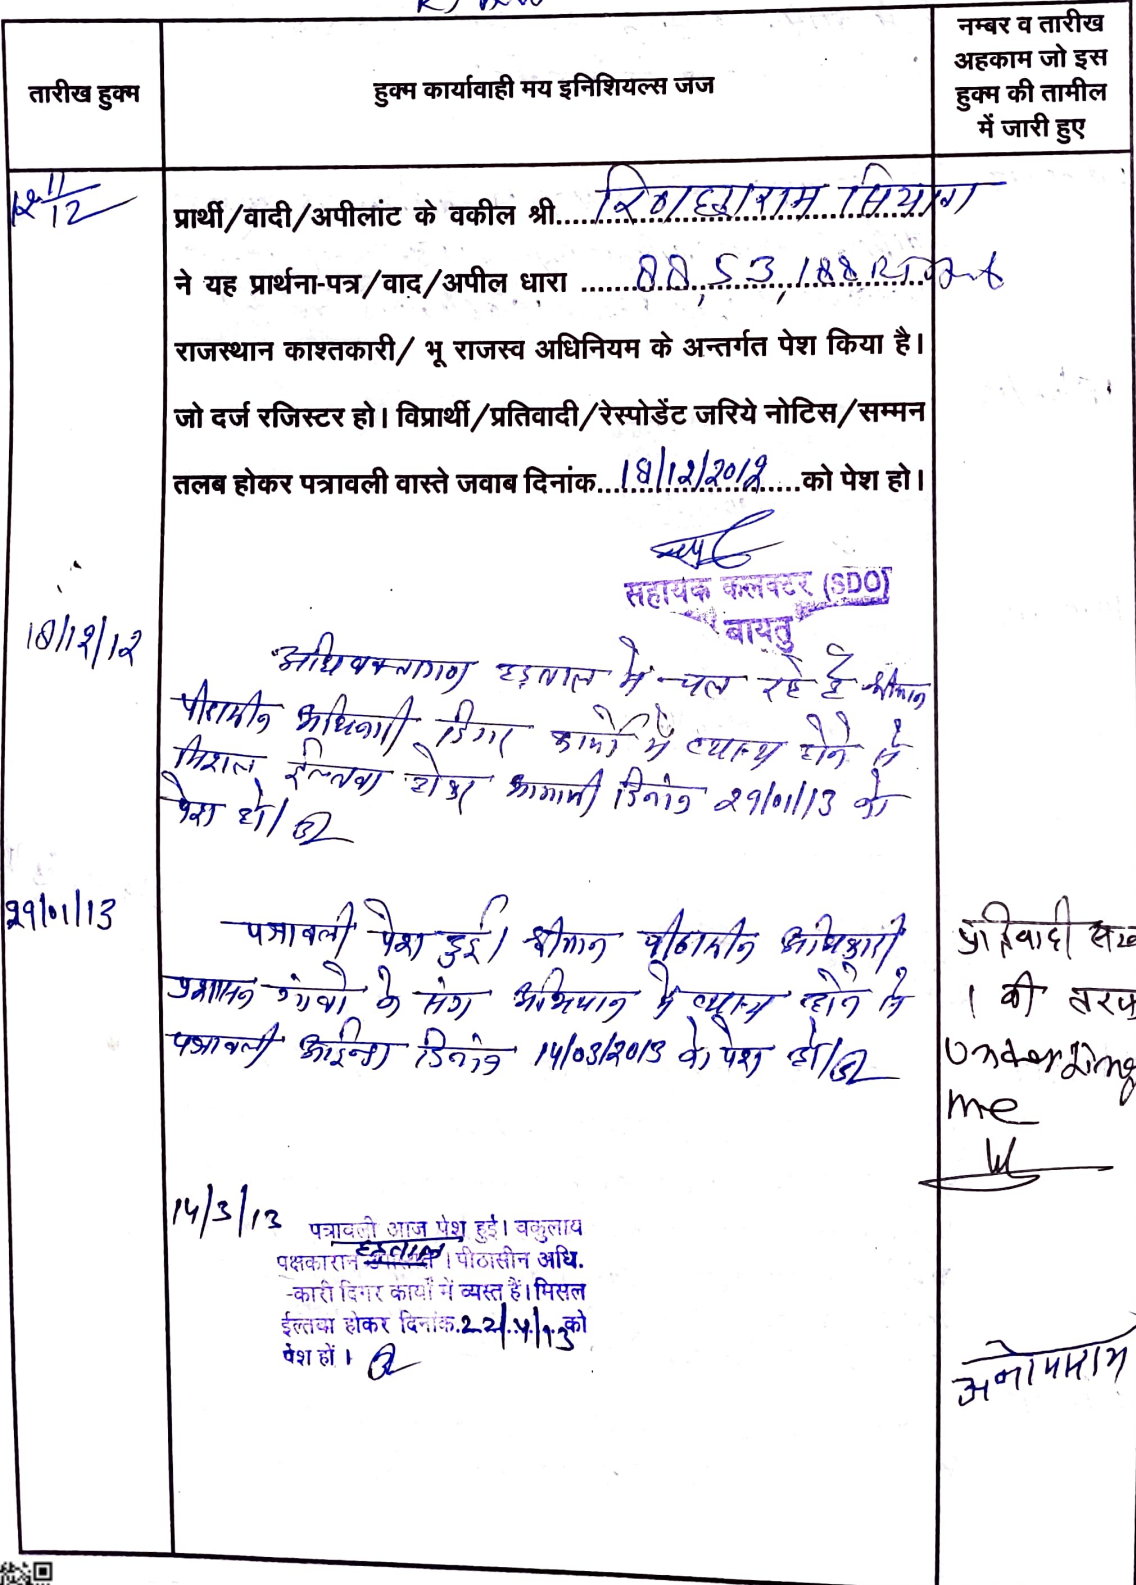 तारीख हुक्म
हुक्म कार्यावाही मय इनिशियल्स जज
नम्बर व तारीख
अहकाम जो इस
हुक्म की तामील
में जारी हुए
11
12
प्रार्थी/वादी/अपीलांट के वकील श्री.... सियाग
ने यह प्रार्थना-पत्र/वाद/अपील धारा .....88, 53, 188
राजस्थान काश्तकारी/ भू राजस्व अधिनियम के अन्तर्गत पेश किया है।
जो दर्ज रजिस्टर हो। विप्रार्थी/प्रतिवादी/रेस्पोडेंट जरिये नोटिस/सम्मन
तलब होकर पत्रावली वास्ते जवाब दिनांक...18/12/2012.....को पेश हो।
सहायक कलक्टर (SDO)
बायतु
18/12/12
अधिवक्तागण हड़ताल में चल रहे है श्रीमान
पीठासीन अधिकारी दिगर कार्यो में व्यस्त होने से
मिशल ईल्तवा होकर आगामी दिनांक 29/01/13 को
पेश हो/
29/01/13
पत्रावली पेश हुई। श्रीमान पीठासीन अधिकारी
प्रशासन गांवो के संग अभियान में व्यस्त होने से
पत्रावली आईन्दा दिनांक 14/03/2013 को पेश हो/
प्रतिवादी
1 की तरफ
me
14/3/13
पत्रावली आज पेश हुई। वकुलाय
पक्षकारान हड़ताल । पीठासीन अधि.
-कारी दिगर कार्यों में व्यस्त हैं। मिसल
ईल्तवा होकर दिनांक.22/4/13को
पेश हों।
अनोपाराम